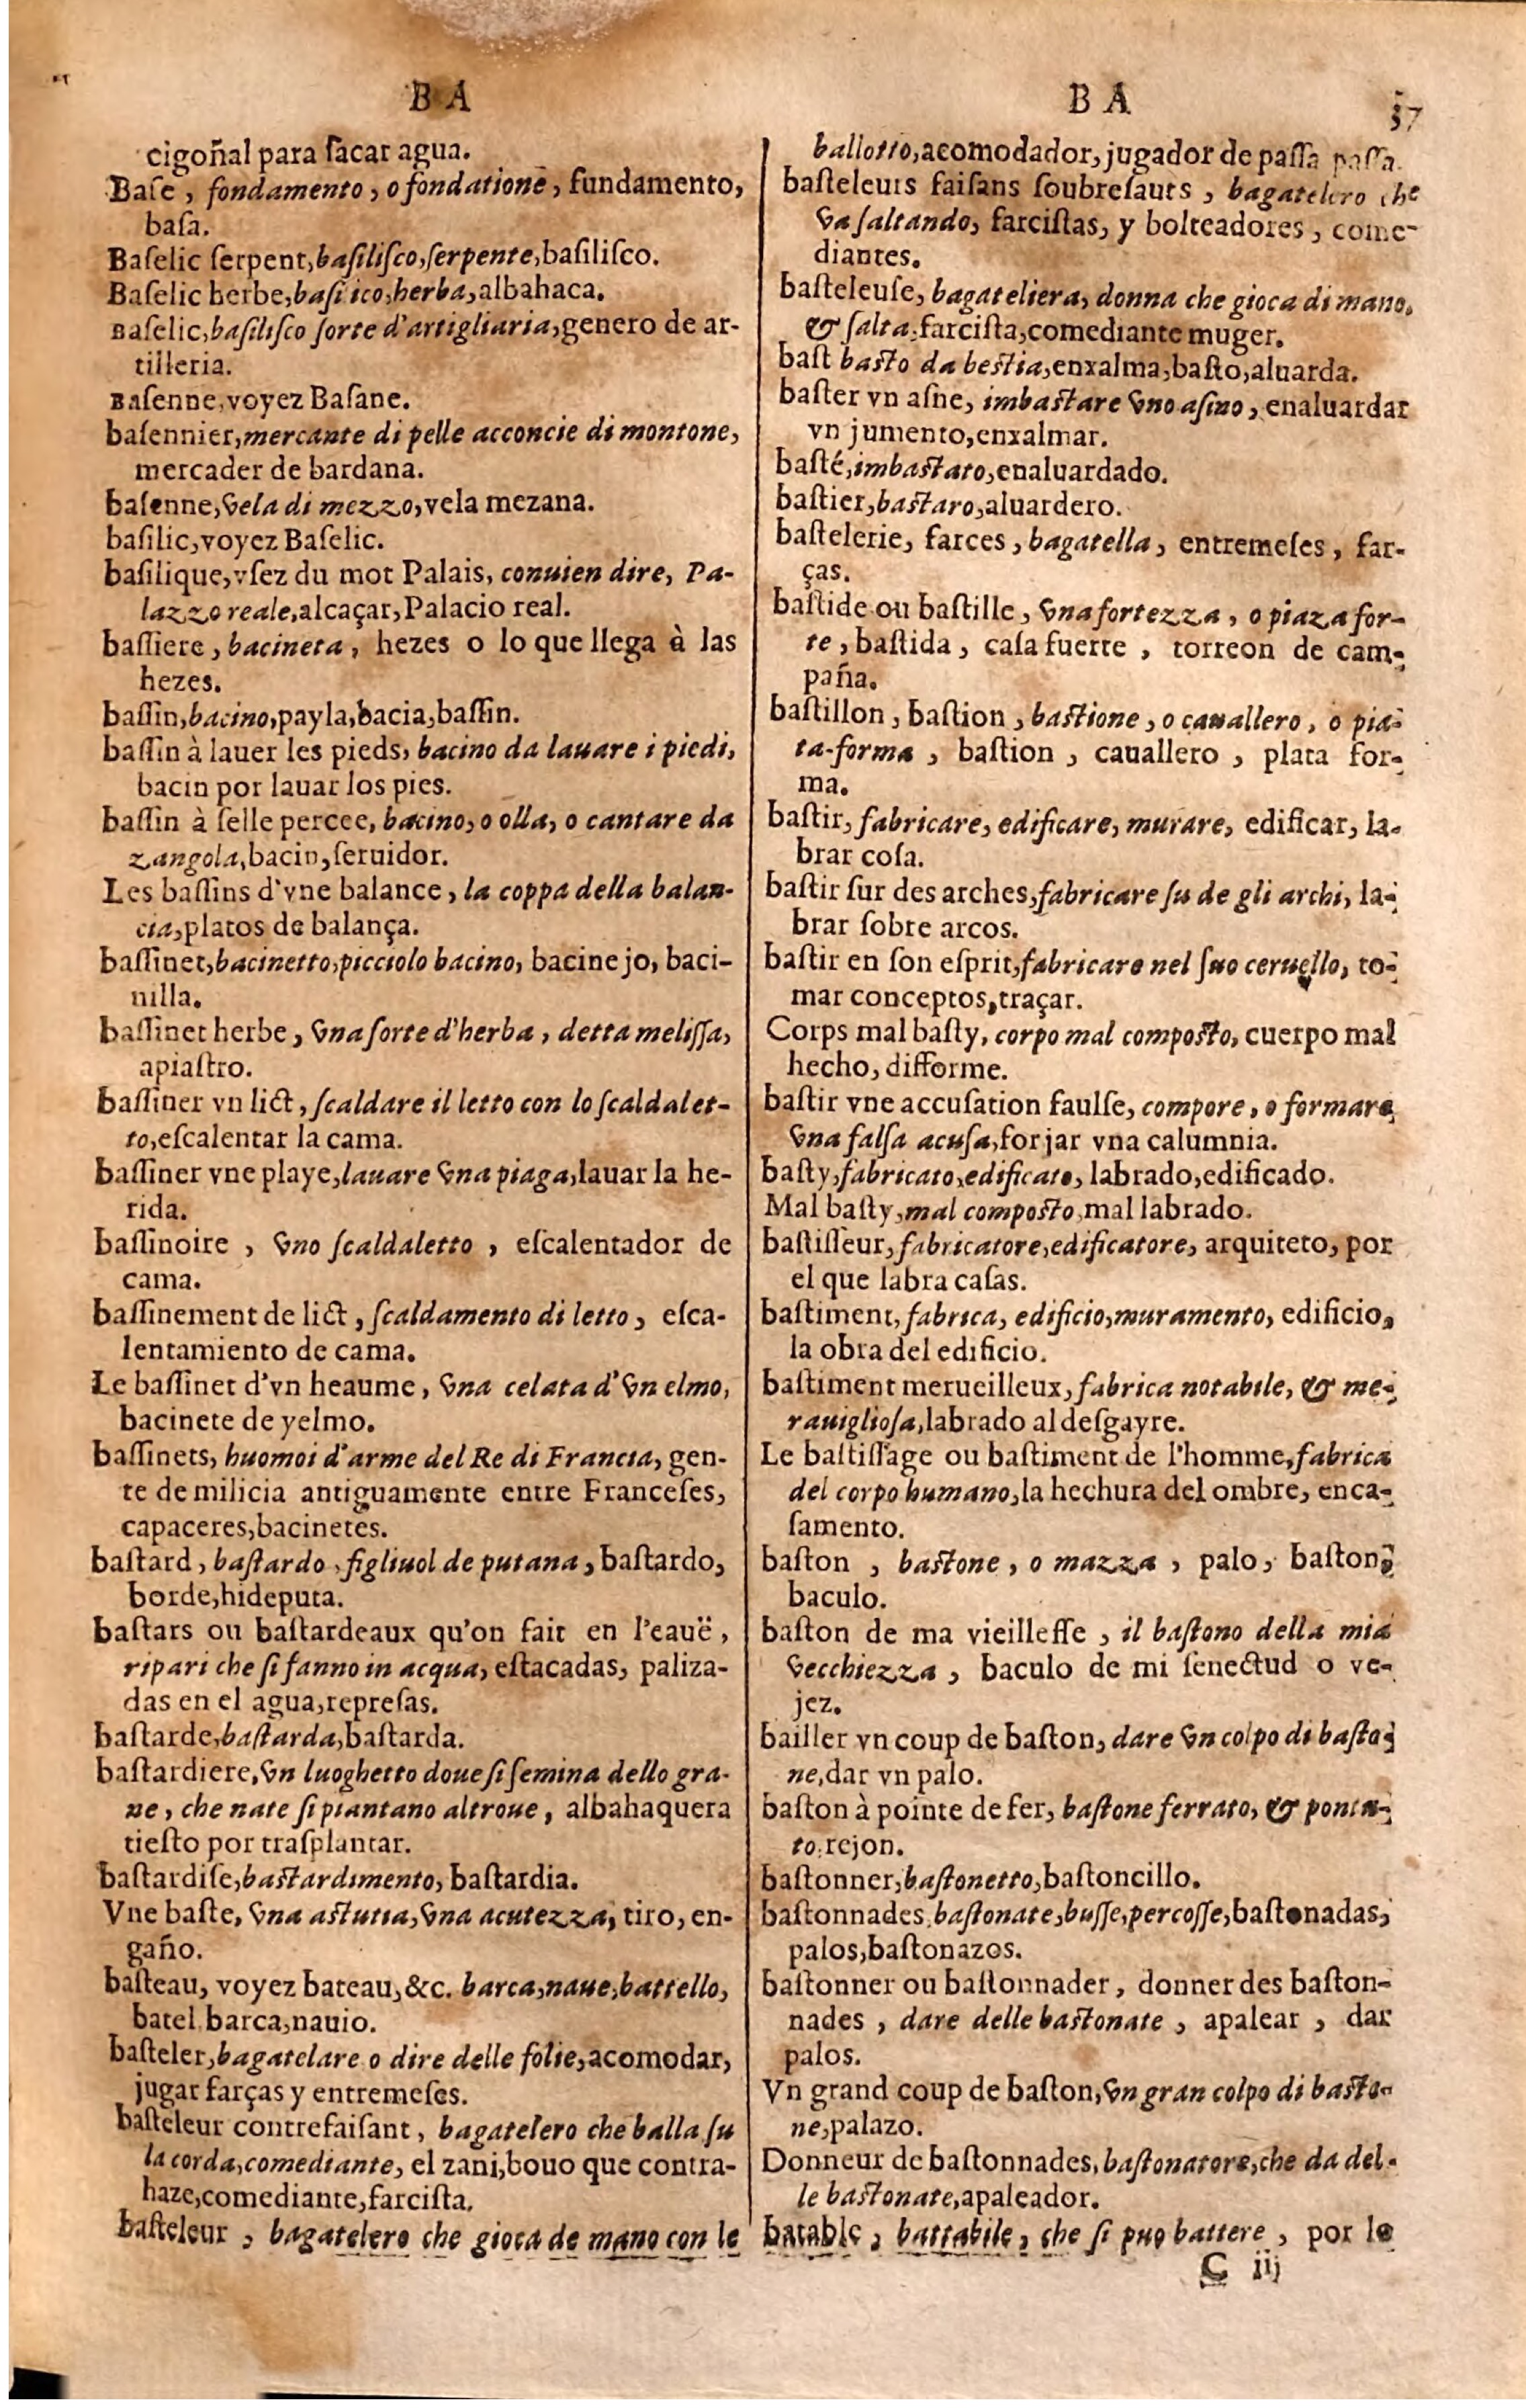 B A
cigoñal para ſacar agua.
Baſe, fondamento, o fondatione, fundamento,
baſa.
Baſelic ſerpent, baſiliſco, ſerpente, baſiliſco.
Baſelic herbe, baſi ico, herba, albahaca.
Baſelic, baſiliſco ſorte d'artigliaria, genero de ar-
tilleria.
Baſenne, voyez Baſane.
baſennier, mercante di pelle acconcie di montone,
mercader de bardana.
baſenne, vela di mezzo, vela mezana.
baſilic, voyez Baſelic.
baſilique, vſez du mot Palais, conuien dire, Pa-
lazzo reale, alcaçar, Palacio real.
baſſiere, bacineta, hezes o lo que llega à las
hezes.
baſſin, bacino, payla, bacia, baſſin.
baſſin à lauer les pieds, bacino da lauare i piedi,
bacin por lauar los pies.
baſſin à ſelle percee, bacino, o olla, o cantare da
zangola, bacin, ſeruidor.
Les baſſins d'vne balance, la coppa della balan-
cia, platos de balança.
baſſinet, bacinetto, picciolo bacino, bacinejo, baci-
nilla.
baſſinet herbe, vna ſorte d'herba, detta meliſſa,
apiaſtro.
baſſiner vn lict, ſcaldare il letto con lo ſcaldalet-
to, eſcalentar la cama.
baſſiner vne playe, lauare vna piaga, lauar la he-
rida.
baſſinoire, vno ſcaldaletto, eſcalentador de
cama.
baſſinement de lict, ſcaldamento di letto, eſca-
lentamiento de cama.
Le baſſinet d'vn heaume, vna celata d'vn elmo,
bacinete de yelmo.
baſſinets, huomoi d'arme del Re di Francia, gen-
te de milicia antiguamente entre Franceſes,
capaceres, bacinetes.
baſtard, baſtardo, figliuol de putana, baſtardo,
borde, hideputa.
baſtars ou baſtardeaux qu'on fait en l'eauë,
ripari che ſi fanno in acqua, eſtacadas, paliza-
das en el agua, repreſas.
baſtarde, baſtarda, baſtarda.
baſtardiere, vn luoghetto doue ſi ſemina dello gra-
ne, che nate ſi piantano altroue, albahaquera
tieſto por traſplantar.
baſtardiſe, baſtardimento, baſtardia.
Vne baſte, vna aſtutia, vna acutezza, tiro, en-
gaño.
baſteau, voyez bateau, &c. barca, naue, battello,
batel, barca, nauio.
baſteler, bagatelare o dire delle folie, acomodar,
jugar farças y entremeſes.
baſteleur contrefaiſant, bagatelero che balla ſu
la corda, comediante, el zani, bouo que contra-
haze, comediante, farciſta.
baſteleur, bagatelero che gioca de mano con le
B A 37
ballotto, acomodador, jugador de paſſa paſſa.
baſteleurs faiſans ſoubreſauts, bagatelero che
va ſaltando, farciſtas, y bolteadores, come-
diantes.
baſteleuſe, bagateliera, donna che gioca di mano,
& ſalta, farciſta, comediante muger.
baſt baſto da beſtia, enxalma, baſto, aluarda.
baſter vn aſne, imbaſtare vno aſino, enaluardar
vn jumento, enxalmar.
baſté, imbaſtato, enaluardado.
baſtier, baſtaro, aluardero.
baſtelerie, farces, bagatella, entremeſes, far-
ças.
baſtide ou baſtille, vna fortezza, o piaza for-
te, baſtida, caſa fuerte, torreon de cam-
paña.
baſtillon, baſtion, baſtione, o cauallero, o pia-
ta-forma, baſtion, cauallero, plata for-
ma.
baſtir, fabricare, edificare, murare, edificar, la-
brar coſa.
baſtir ſur des arches, fabricare ſu de gli archi, la-
brar ſobre arcos.
baſtir en ſon eſprit, fabricare nel ſuo ceruello, to-
mar conceptos, traçar.
Corps mal baſty, corpo mal compoſto, cuerpo mal
hecho, difforme.
baſtir vne accuſation faulſe, compore, o formare
vna falſa acuſa, forjar vna calumnia.
baſty, fabricato, edificato, labrado, edificado.
Mal baſty, mal compoſto, mal labrado.
baſtiſſeur, fabricatore, edificatore, arquiteto, por
el que labra caſas.
baſtiment, fabrica, edificio, muramento, edificio,
la obra del edificio.
baſtiment merueilleux, fabrica notabile, & me-
rauiglioſa, labrado al deſgayre.
Le baſtiſſage ou baſtiment de l'homme, fabrica
del corpo humano, la hechura del ombre, enca-
ſamento.
baſton, baſtone, o mazza, palo, baſton,
baculo.
baſton de ma vieilleſſe, il baſtono della mia
vecchiezza, baculo de mi ſenectud o ve-
jez.
bailler vn coup de baſton, dare vn colpo di baſto-
ne, dar vn palo.
baſton à pointe de fer, baſtone ferrato, & ponta-
to, rejon.
baſtonner, baſtonetto, baſtoncillo.
baſtonnades, baſtonate, buſſe, percoſſe, baſtonadas,
palos, baſtonazos.
baſtonner ou baſtonnader, donner des baſton-
nades, dare delle baſtonate, apalear, dar
palos.
Vn grand coup de baſton, vn gran colpo di baſto-
ne, palazo.
Donneur de baſtonnades, baſtonatore, che da del-
le baſtonate, apaleador.
batable, battabile, che ſi puo battere, por lo
C iij